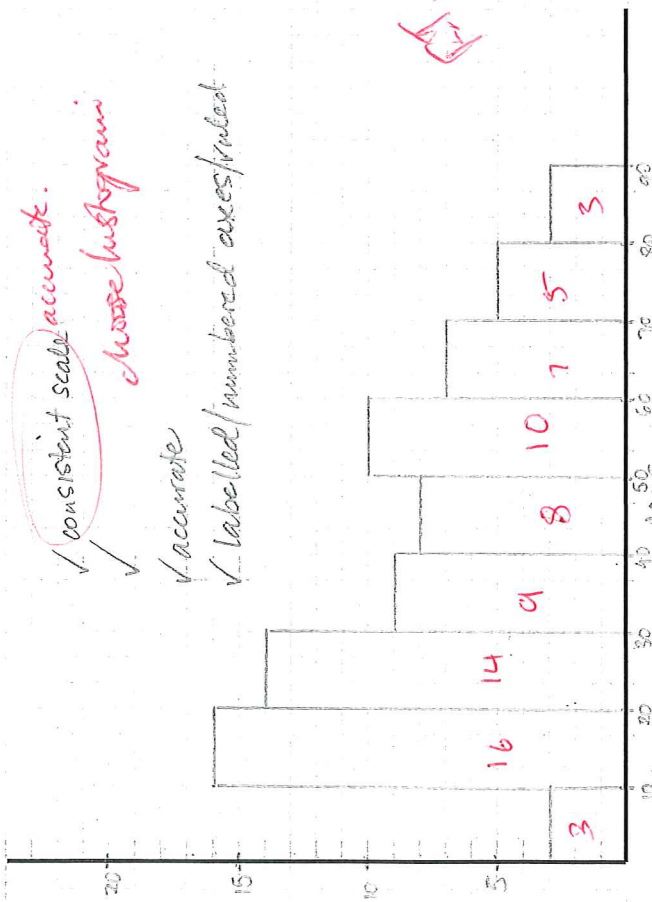 ✓ consistent scale / accurate.
✓ choose histogram
✓ accurate
✓ labelled / numbered axes / ruled
20
15
10
5
3 16 14 9 8 10 7 5 3
10 20 30 40 50 60 70 80